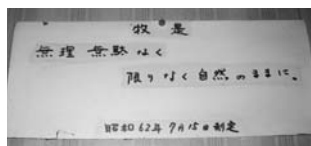 牧是
無理 無駄 なく
限りなく自然のままに。
昭和62年7月15日制定